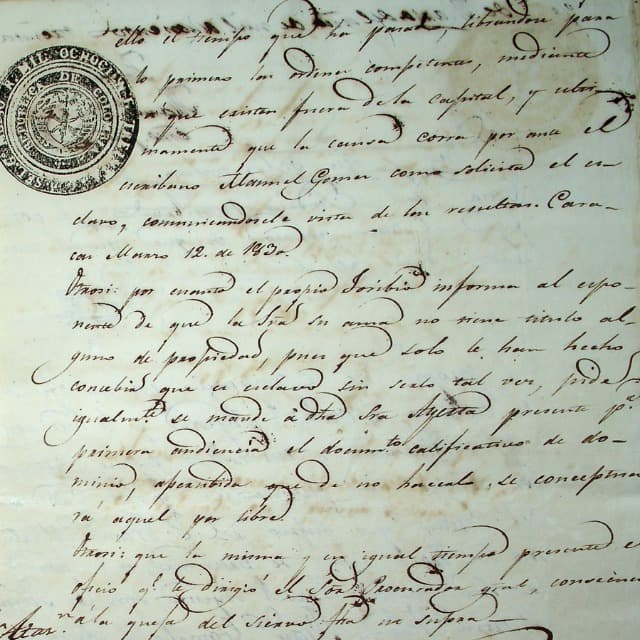 ello el tiempo que ha pasado, librandose para
lo primero las ordenes competentes, mediante
a que existen fuera de la Capital, y ultima
mamente que la causa corra por ante el
escribano Manuel Gomez como solicita el es
clavo, comunicandosele vista de las resultas. Cara-
cas Marzo 12. de 1830.
Otrosi: por cuanto el propio Toribio informa al espo-
nente de que la Srã su ama no tiene titulo al-
guno de propiedad, pues que solo le han hecho
concebir que es esclavo sin serlo tal vez, pide
igualmte se mande â dha Sra presente pª
primera audiencia el documto calificativo de do-
minio, apercibida que de no hacerlo, se conceptua
rá aquel por libre.
Otrosi: que la misma y en igual tiempo presente el
oficio qe le dirigió el Sor Procurador gral, consecuen
á la queja del siervo fha ut supra